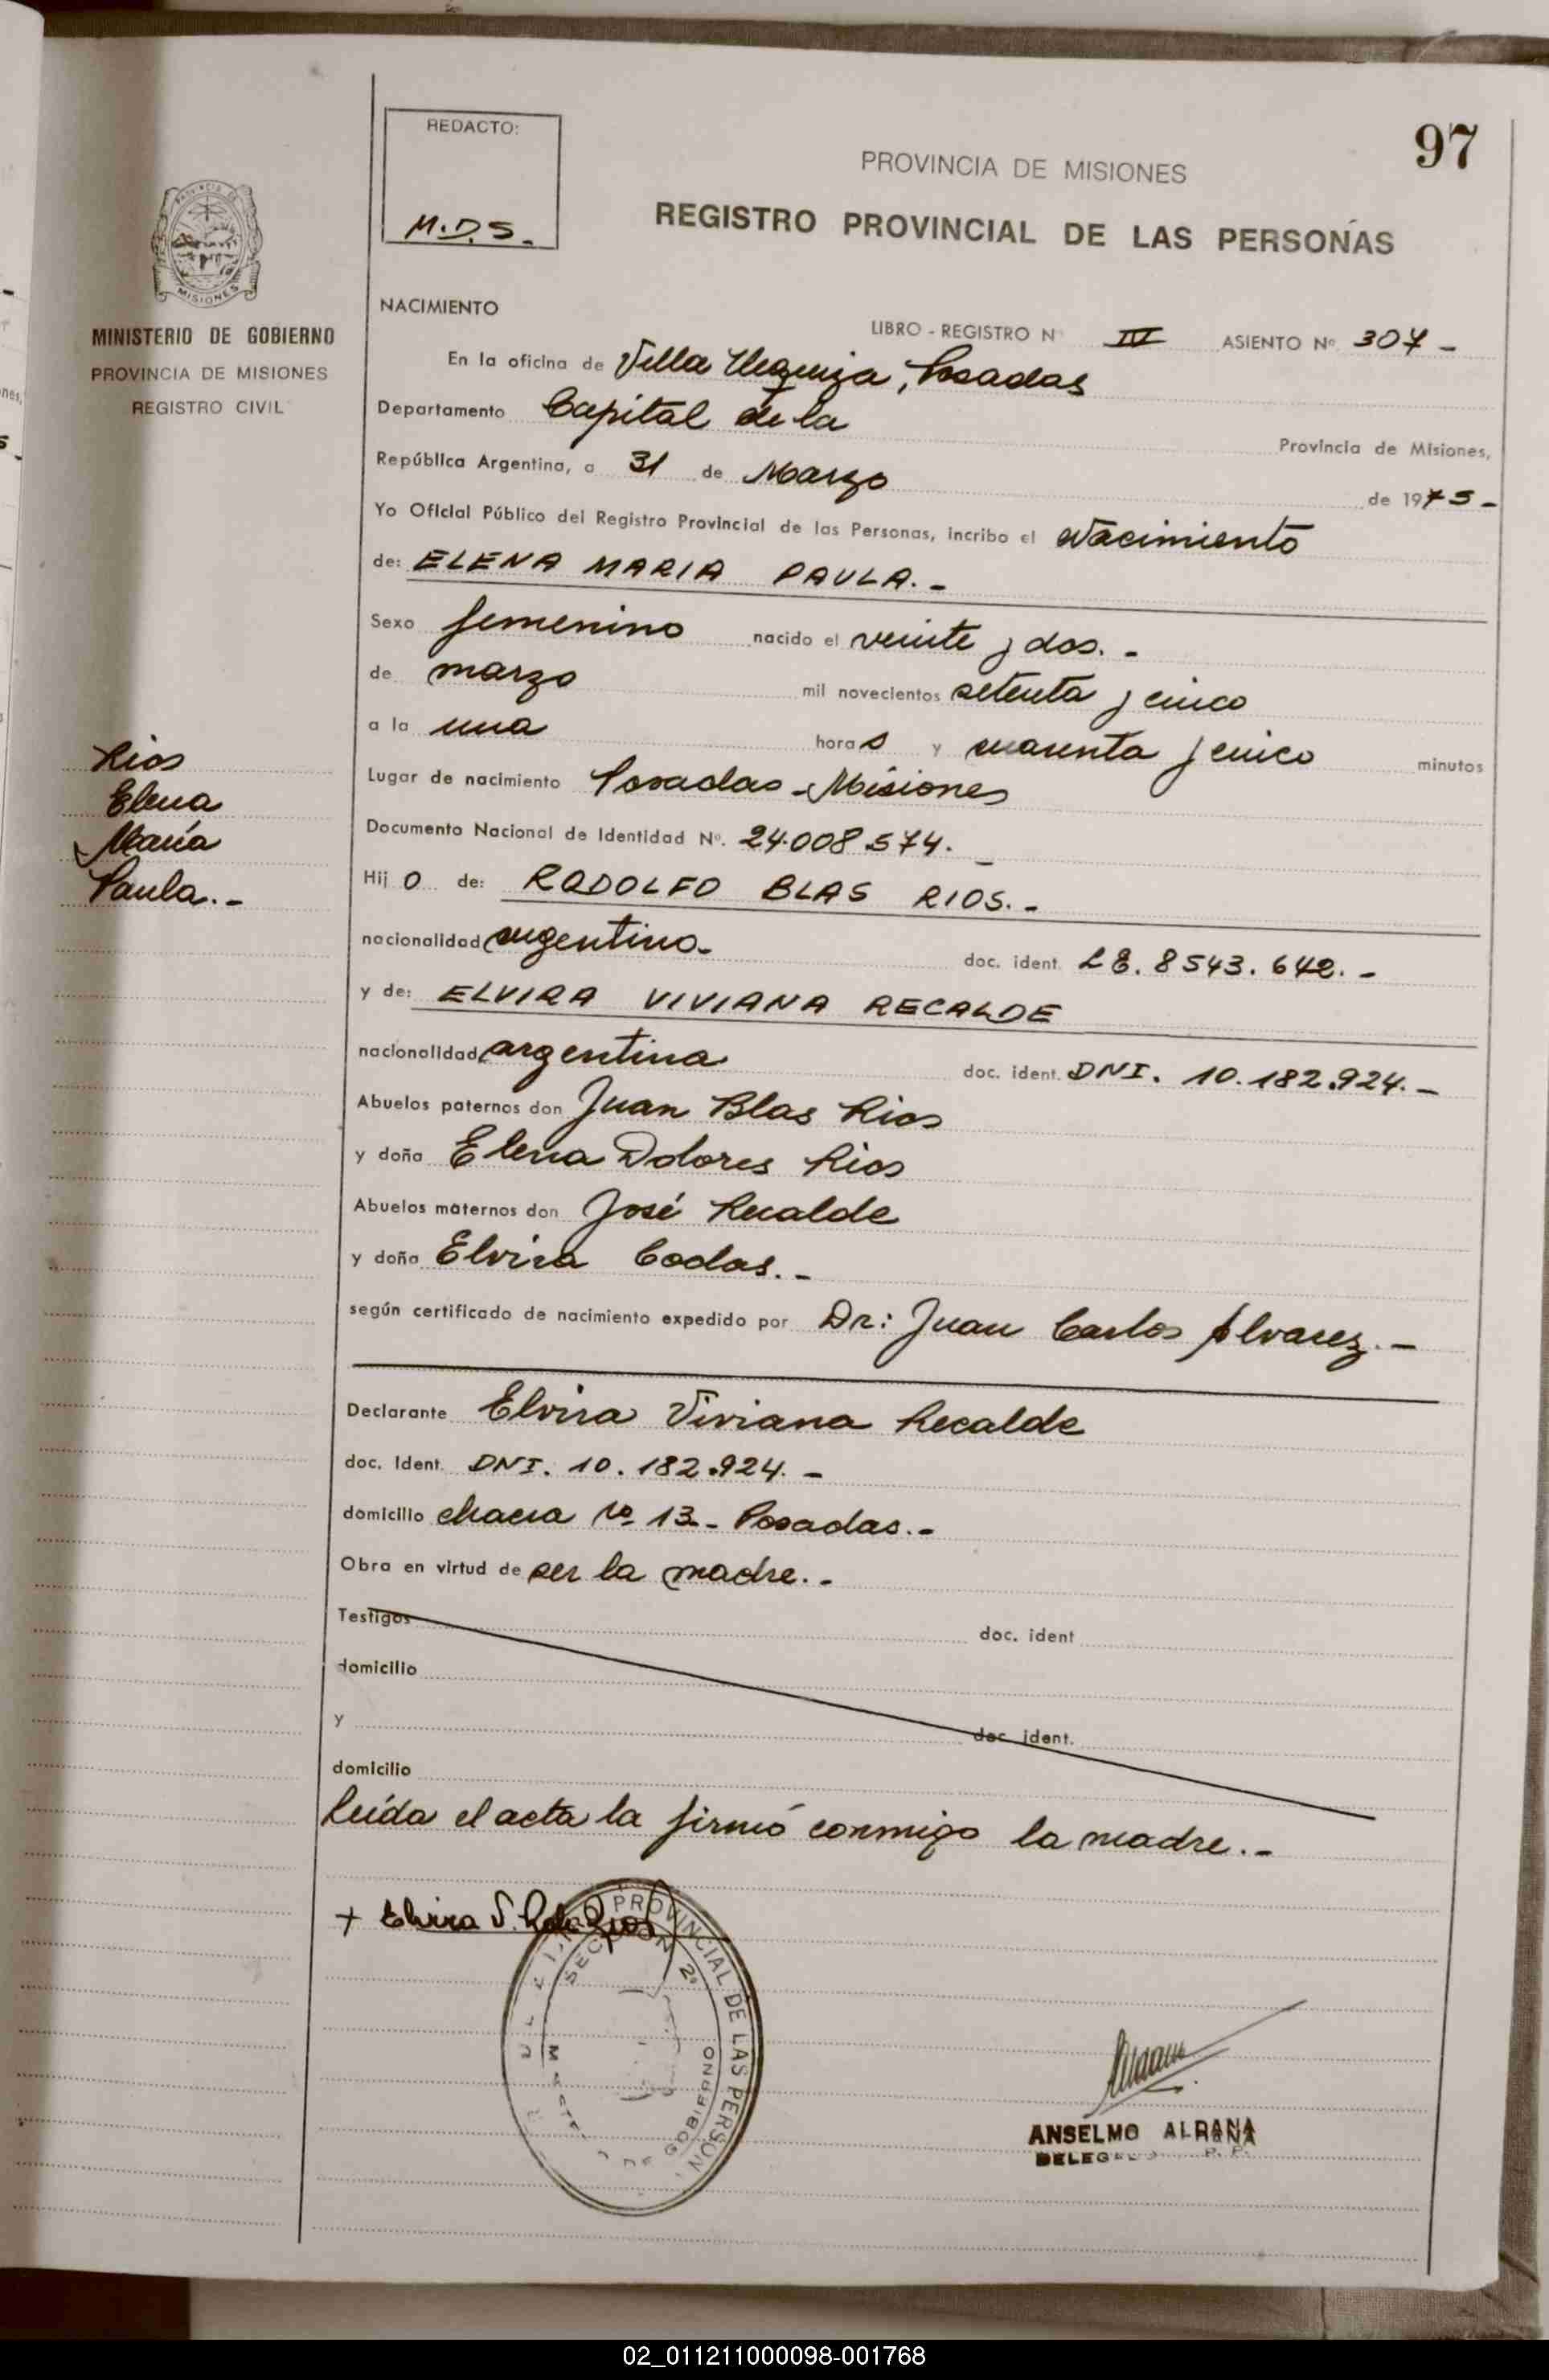 97
REDACTO:
M.D.S.
PROVINCIA DE MISIONES
REGISTRO PROVINCIAL DE LAS PERSONAS
MISIONES
MINISTERIO DE GOBIERNO
PROVINCIA DE MISIONES
REGISTRO CIVIL
NACIMIENTO
LIBRO - REGISTRO Nº IV ASIENTO Nº 307 -
En la oficina de Villa Urquiza, Posadas
Departamento Capital de la Provincia de Misiones,
República Argentina, a 31 de Marzo de 1975 -
Yo Oficial Público del Registro Provincial de las Personas, incribo el Nacimiento
de: ELENA MARIA PAULA. -
Sexo femenino nacido el veinte y dos. -
de marzo mil novecientos setenta y cinco
a la una horas y cuarenta y cinco minutos
Lugar de nacimiento Posadas - Misiones
Documento Nacional de Identidad Nº. 24.008.574. -
Hijo de: RODOLFO BLAS RIOS. -
nacionalidad argentino - doc. ident. LE. 8543.642. -
y de: ELVIRA VIVIANA RECALDE
nacionalidad argentina doc. ident. DNI. 10.182.924. -
Abuelos paternos don Juan Blas Rios
y doña Elena Dolores Rios
Abuelos maternos don José Recalde
y doña Elvira Codas. -
según certificado de nacimiento expedido por Dr: Juan Carlos Alvarez. -
Declarante Elvira Viviana Recalde
doc. Ident. DNI. 10.182.924. -
domicilio chacra Nº 13 - Posadas. -
Obra en virtud de ser la madre. -
Testigos doc. ident
domicilio
y doc. ident.
domicilio
Leída el acta la firmó conmigo la madre. -
Rios
Elena
María
Paula. -
+ Elvira V. de Rios
PROVINCIAL DE LAS PERSON
SECCION 2º
GOBIERNO
ANSELMO ALDANA
02_011211000098-001768